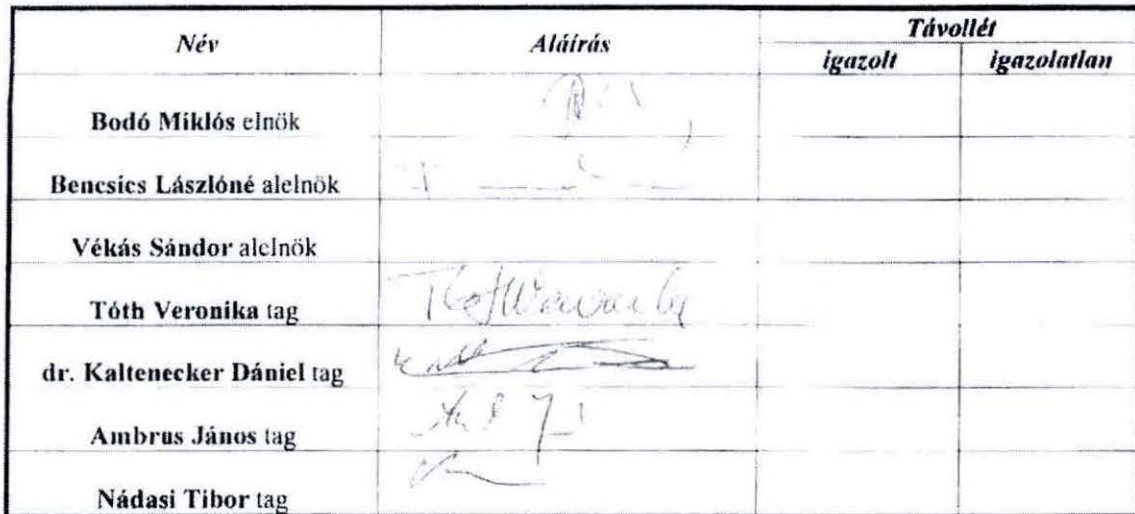 Név Aláírás Távollét
igazolt igazolatlan
Bodó Miklós elnök
Bencsics Lászlóné alelnök
Vékás Sándor alelnök
Tóth Veronika tag
dr. Kaltenecker Dániel tag
Ambrus János tag
Nádasi Tibor tag